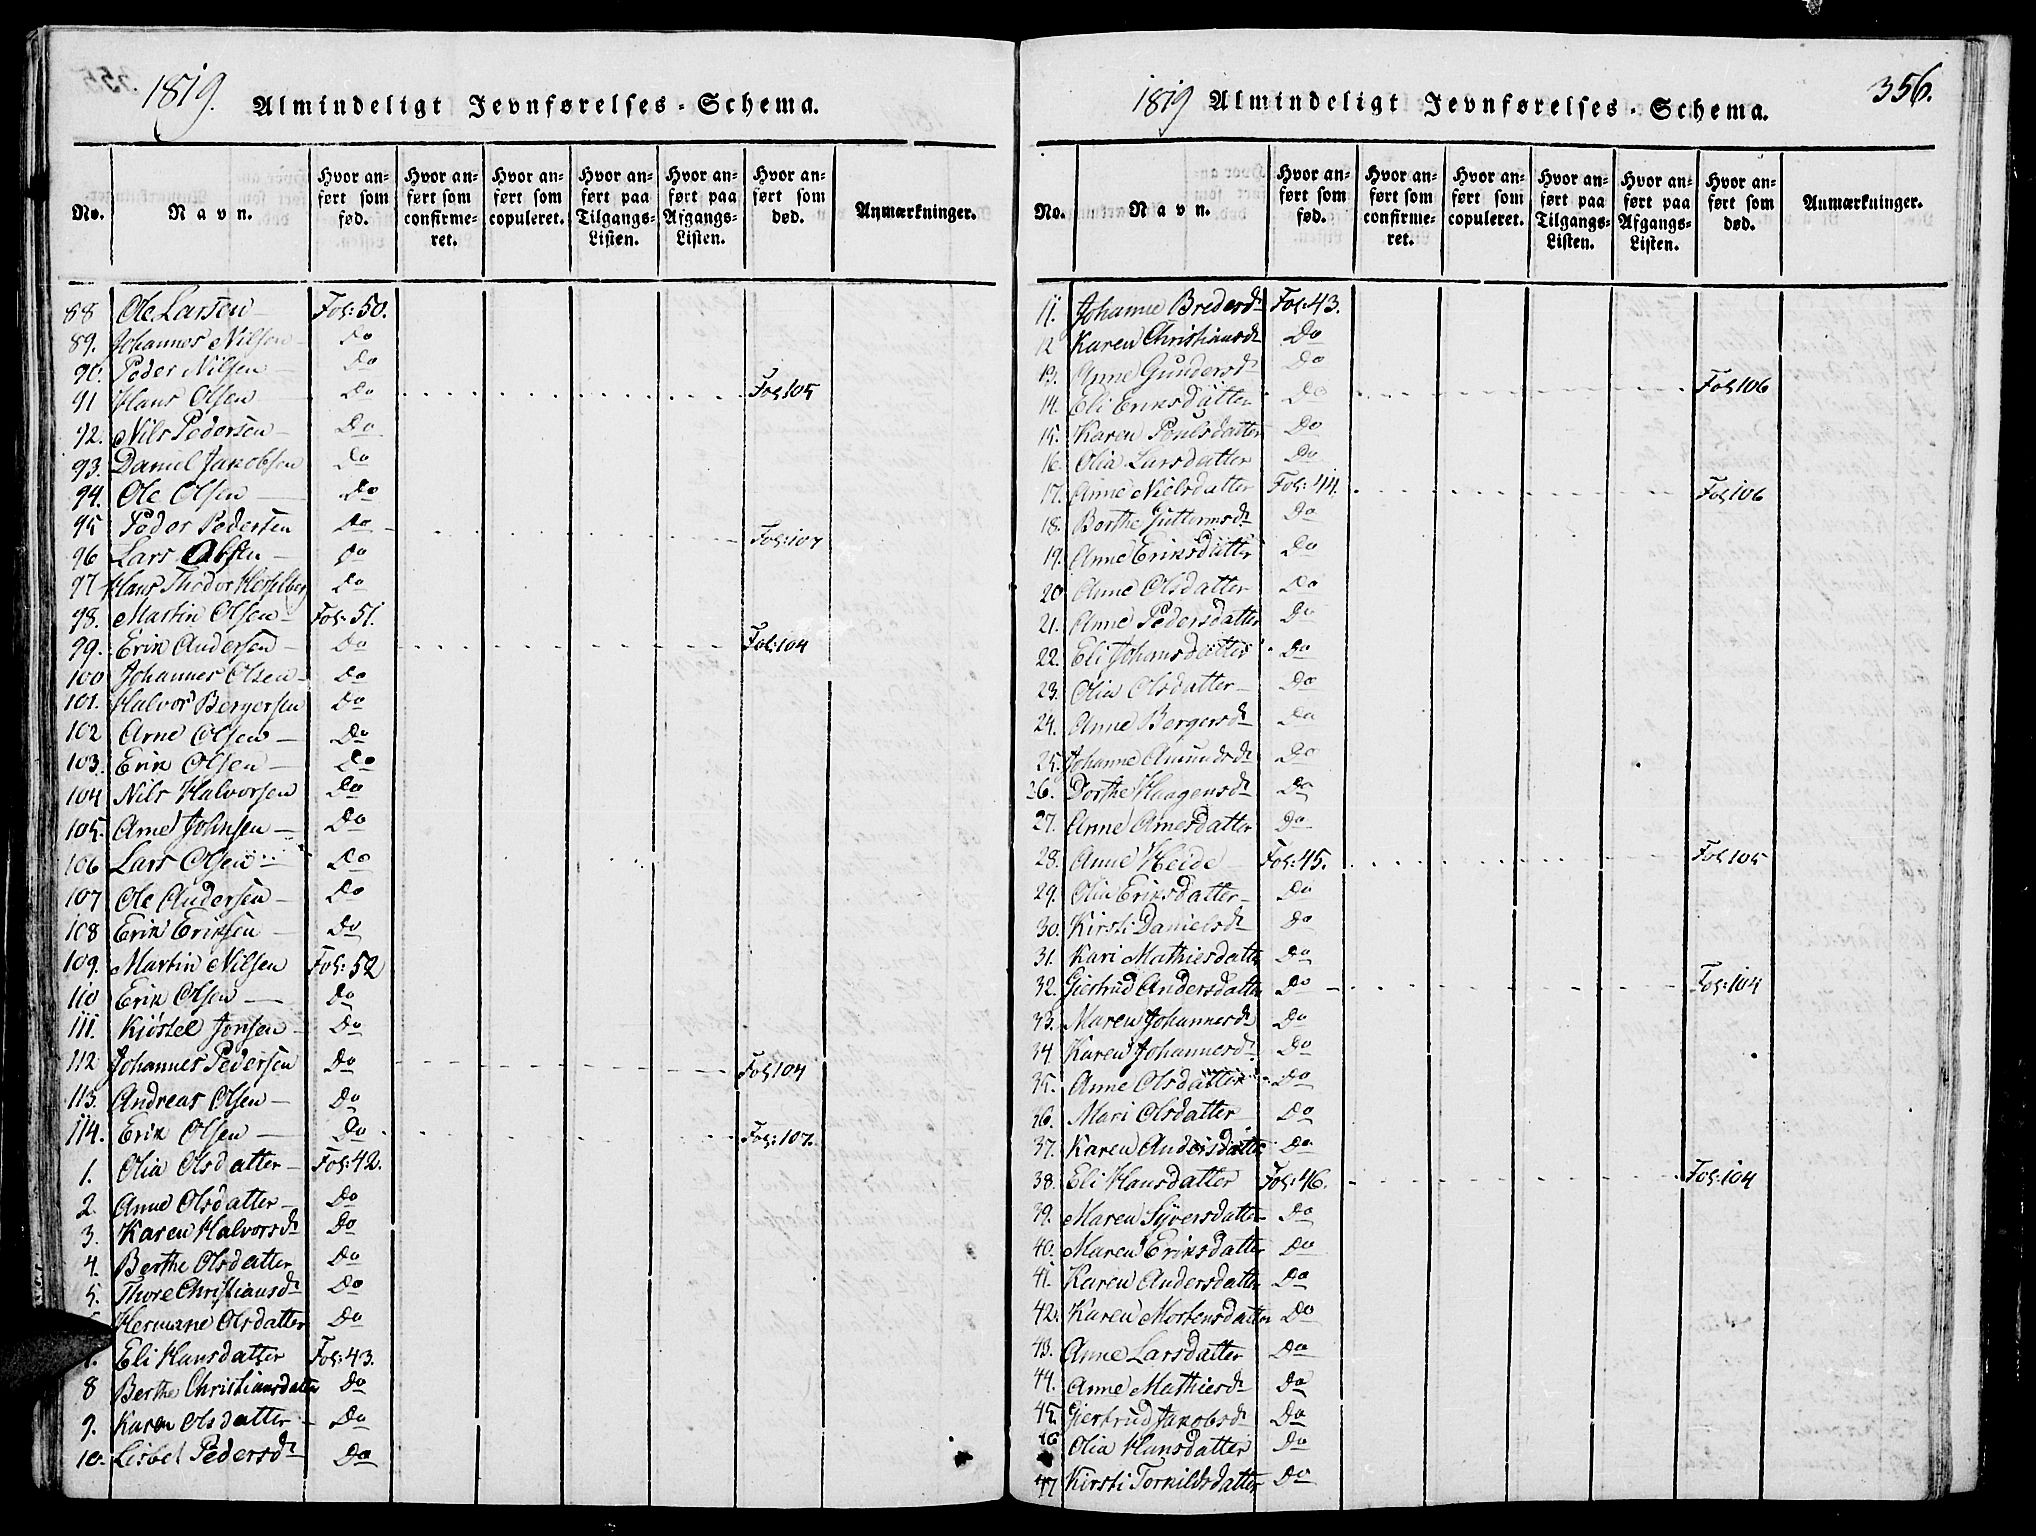 1819. Almindeligt Jevnførelses-Schema.
No. Navn. Hvor anført som fød. Hvor anført som confirmeret. Hvor anført som copuleret. Hvor anført paa Tilgangs-Listen. Hvor anført paa Afgangs-Listen. Hvor anført som død. Anmærkninger.
88 Ole Larsen Fol: 50.
89. Johannes Nilsen Do
90. Peder Nilsen Do
91 Hans Olsen Do Fol 105
92. Nils Pedersen Do
93. Daniel Jakobsen Do
94. Ole Olsen Do
95 Peder Pedersen Do Fol: 107
96 Lars Olsen Do
97 Hans Thodor Hesselberg Do
98. Martin Olsen Fol: 51.
99. Erik Andersen Do Fol: 104
100 Johannes Olsen Do
101. Halvor Bergersen Do
102 Arne Olsen Do
103. Erik Olsen Do
104 Nils Halvorsen Do
105. Arne Johnsen Do
106 Lars Olsen Do
107 Ole Andersen Do
108 Erik Eriksen Do
109. Martin Nilsen Fol: 52
110 Erik Olsen Do
111. Kiöstel Jonsen Do
112 Johannes Pedersen Do Fol 104
113. Andreas Olsen Do
114. Erik Olsen Do Fol: 107.
1. Olia Olsdatter Fol: 42.
2. Anne Olsdatter Do
3. Karen Halvorsd Do
4. Berthe Olsdatter Do
5. Thore Christiansd Do
Hermane Olsdatter Do
7. Eli Hansdatter Fol: 43.
8 Berthe Christiansdatter Do
9. Karen Olsdatter Do
10. Lisbet Pedersd Do
1819 Almindeligt Jevnførelses-Schema. 356.
No. Navn. Hvor anført som fød. Hvor anført som confirmeret. Hvor anført som copuleret. Hvor anført paa Tilgangs-Listen. Hvor anført paa Afgangs-Listen. Hvor anført som død. Anmærkninger.
11. Johanne Bredersd Fol: 43.
12 Karen Christiansd Do
13. Anne Gundersd Do
14. Eli Eriksdatter Do Fol 106
15. Karen Poulsdatter Do
16. Olia Larsdatter Do
17. Anne Nielsdatter Fol: 44. Fol 106
18. Berthe Guttormsd Do
19. Anne Eriksdatter Do
20 Anne Olsdatter Do
21. Anne Pedersdatter Do
22. Eli Johansdatter Do
23. Olia Olsdatter Do
24. Anne Bergersd Do
25. Johanne Amundsd Do
26. Dorthe Haagensd Do
27. Anne Arnesdatter Do
28. Anne Heide Fol: 45. Fol 105
29. Olia Eriksdatter Do
30. Kirsti Danielsd Do
31. Kari Mathiesdatter Do
32. Giertrud Andersdatter Do Fol: 104
33. Maren Johannesd Do
34 Karen Johannesd Do
35. Anne Olsdatter Do
36. Mari Olsdatter Do
37. Karen Andersdatter Do
38. Eli Hansdatter Fol: 46. Fol: 104
39. Maren Syversdatter Do
40. Maren Eriksdatter Do
41. Karen Andersdatter Do
42. Karen Mortensdatter Do
43. Anne Larsdatter Do
44. Anne Mathiesd Do
45. Giertrud Jakobsd Do
46 Olia Hansdatter Do
47 Kirsti Torkildsdatter Do